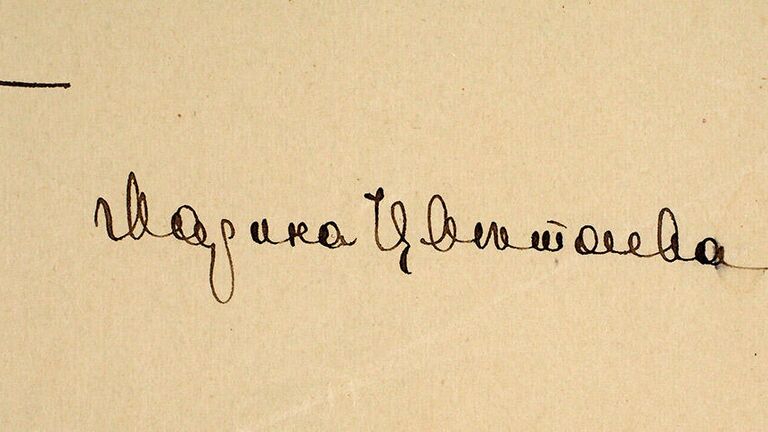 Марина Цветаева